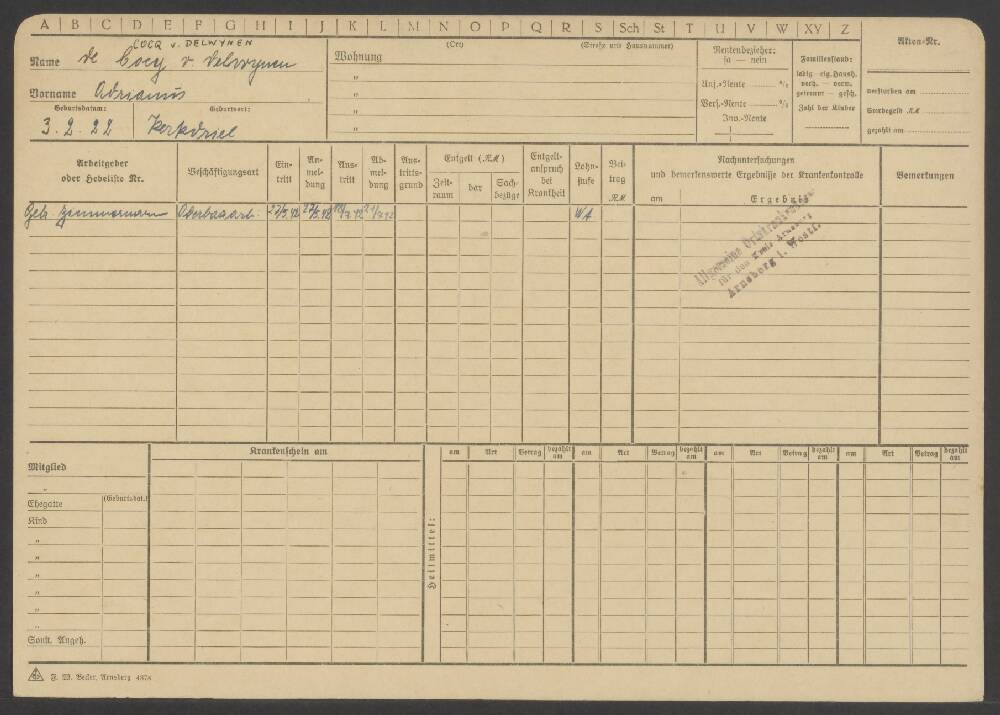 A B C D E F G H I J K L M N O P Q R S Sch St T U V W XY Z
COCQ v. DELWYNEN
Name de Cocq v. Delwynen
Vorname Adrianus
Geburtsdatum: Geburtsort:
3.2.22 Kerkdriel
(Ort) (Straße und Hausnummer)
Wohnung
"
"
"
"
Rentenbezieher:
ja — nein
Inv.-Rente
Familienstand:
ledig – eig. Haush.
verh. – verw.
getrennt – gesch.
Zahl der Kinder
Akten-Nr.
verstorben am
Sterbegeld RM
gezahlt am
Arbeitgeber
oder Hebeliste Nr.
Beschäftigungsart
Ein-
tritt
An-
mel-
dung
Aus-
tritt
Ab-
mel-
dung
Aus-
tritts-
grund
Entgelt (RM)
Zeit-
raum
bar
Sach-
bezüge
Entgelt-
anspruch
bei
Krankheit
Lohn-
stufe
Bei-
trag
RM
Nachuntersuchungen
und bemerkenswerte Ergebnisse der Krankenkontrolle
am Ergebnis
Bemerkungen
Gebr. Zimmermann 27/5.42 27/5.42
Allgemeine Ortskrankenkasse
für den Kreis Arnsberg
Arnsberg i. Westf.
Krankenschein am
Mitglied
"
Ehegatte (Geburtsdat.)
Kind
"
"
"
"
"
"
Sonst. Angeh.
Heilmittel:
am Art Betrag bezahlt am am Art Betrag bezahlt am am Art Betrag bezahlt am am Art Betrag bezahlt am
F. W. Becker, Arnsberg 4373